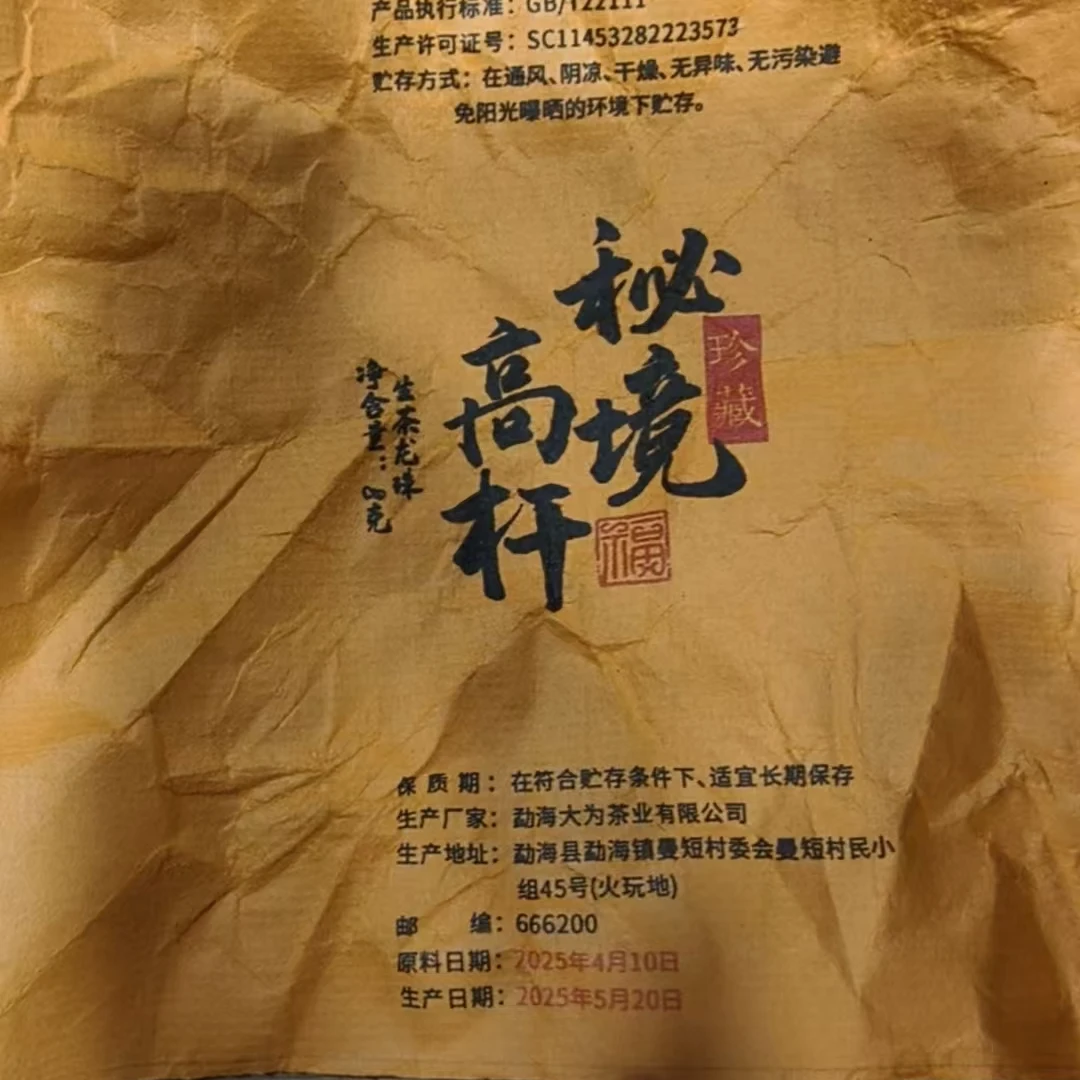 产品执行标准：GB/T22111
生产许可证号：SC11453282223573
贮存方式：在通风、阴凉、干燥、无异味、无污染避
免阳光曝晒的环境下贮存。
秘境
珍藏
高杆
福
生茶龙珠
净含量：8克
保质期：在符合贮存条件下、适宜长期保存
生产厂家：勐海大为茶业有限公司
生产地址：勐海县勐海镇曼短村委会曼短村民小
组45号(火玩地)
邮编：666200
原料日期：2025年4月10日
生产日期：2025年5月20日